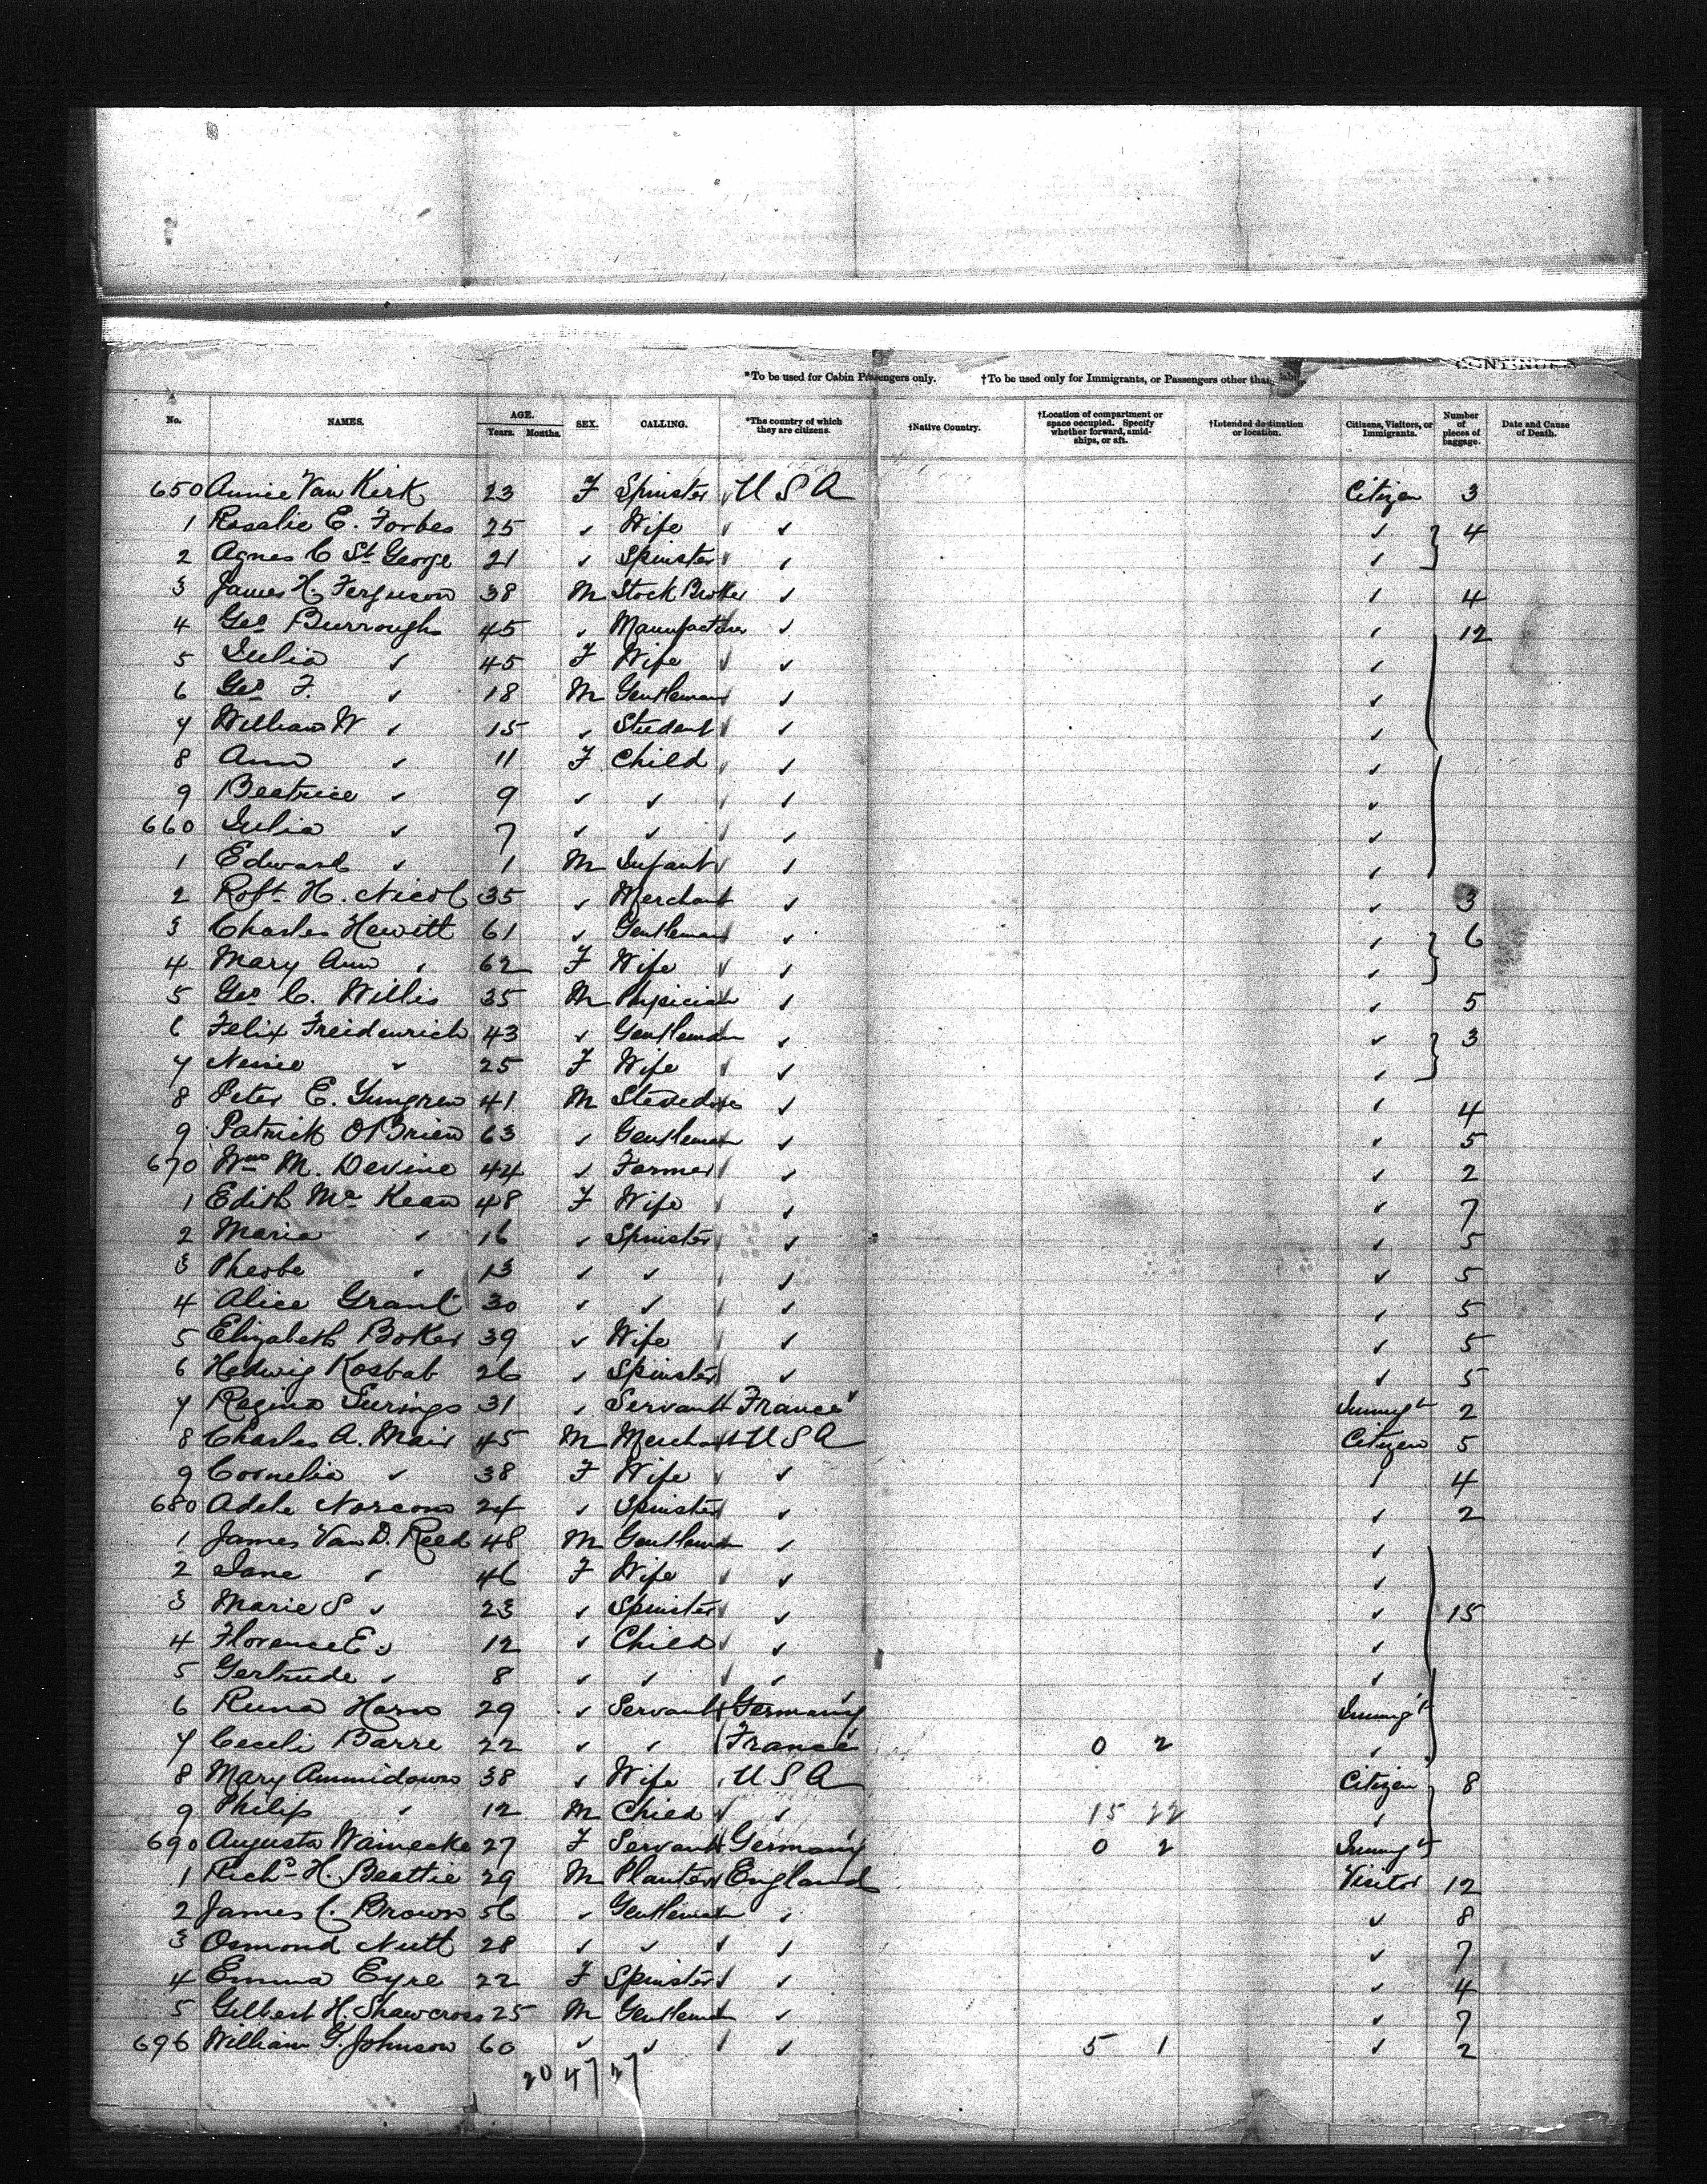 *To be used for Cabin Passengers only. †To be used only for Immigrants, or Passengers other than
No. NAMES. AGE. Years. Months. SEX. CALLING. *The country of which they are citizens. †Native Country. †Location of compartment or space occupied. Specify whether forward, amidships, or aft. †Intended destination or location. Citizens, Visitors, or Immigrants. Number of pieces of baggage. Date and Cause of Death.
650 Annie Van Kirk 23 F Spinster U S A Citizen 3
1 Rosalie E. Forbes 25 ✓ Wife ✓ ✓ 4
2 Agnes C St George 21 ✓ Spinster ✓ ✓
3 James H. Ferguson 38 M Stock Broker ✓ ✓ 4
4 Geo Burroughs 45 ✓ Manufacturer ✓ ✓ 12
5 Julia ✓ 45 F Wife ✓ ✓
6 Geo F. ✓ 18 M Gentleman ✓ ✓
7 William W ✓ 15 ✓ Student ✓ ✓
8 Ann ✓ 11 F Child ✓ ✓
9 Beatrice ✓ 9 ✓ ✓ ✓ ✓
660 Julia ✓ 7 ✓ ✓ ✓ ✓
1 Edward ✓ 1 M Infant ✓ ✓
2 Robt H. Nicol 35 ✓ Merchant ✓ ✓ 3
3 Charles Hewitt 61 ✓ Gentleman ✓ ✓ 6
4 Mary Ann ✓ 62 F Wife ✓ ✓
5 Geo C. Willis 35 M Physician ✓ ✓ 5
6 Felix Freidenrich 43 ✓ Gentleman ✓ ✓ 3
7 ✓ 25 F Wife ✓ ✓
8 Peter E. 41 M Stevedore ✓ ✓ 4
9 Patrick OBrien 63 ✓ Gentleman ✓ ✓ 5
670 Wm M. Devine 44 ✓ Farmer ✓ ✓ 2
1 Edith Mc Kean 48 F Wife ✓ ✓ 7
2 Maria ✓ 16 ✓ Spinster ✓ ✓ 5
3 Pheobe ✓ 13 ✓ ✓ ✓ ✓ 5
4 Alice Grant 30 ✓ ✓ ✓ ✓ 5
5 Elizabeth Boker 39 ✓ Wife ✓ ✓ 5
6 Hedwig Kosbab 26 ✓ Spinster ✓ ✓ 5
7 Regina 31 ✓ Servant France Immigt 2
8 Charles A. Mair 45 M Merchant U S A Citizen 5
9 Cornelia ✓ 38 F Wife ✓ ✓ 4
680 Adele Norcom 24 ✓ Spinster ✓ ✓ 2
1 James Van D. Reed 48 M Gentleman ✓ ✓
2 Jane ✓ 46 F Wife ✓ ✓
3 Marie S ✓ 23 ✓ Spinster ✓ ✓ 15
4 Florence E ✓ 12 ✓ Child ✓ ✓
5 Gertrude ✓ 8 ✓ ✓ ✓ ✓
6 Horn 29 ✓ Servant Germany Immigt
7 Ceceli Barre 22 ✓ ✓ France 0 2 ✓
8 Mary Ammidown 38 ✓ Wife U S A Citizen 8
9 Philip ✓ 12 M Child ✓ 15 22 ✓
690 Augusta Wainecke 27 F Servant Germany 0 2 Immigt
1 Richd H. Beattie 29 M Planter England Visitor 12
2 James C. Brown 56 ✓ Gentleman ✓ ✓ 8
3 Osmond Nutt 28 ✓ ✓ ✓ ✓ 7
4 Emma Eyre 22 F Spinster ✓ ✓ 4
5 Gilbert H. Shawcross 25 M Gentleman ✓ ✓ 7
696 William G. Johnson 60 ✓ ✓ ✓ 5 1 ✓ 2
20 47 27